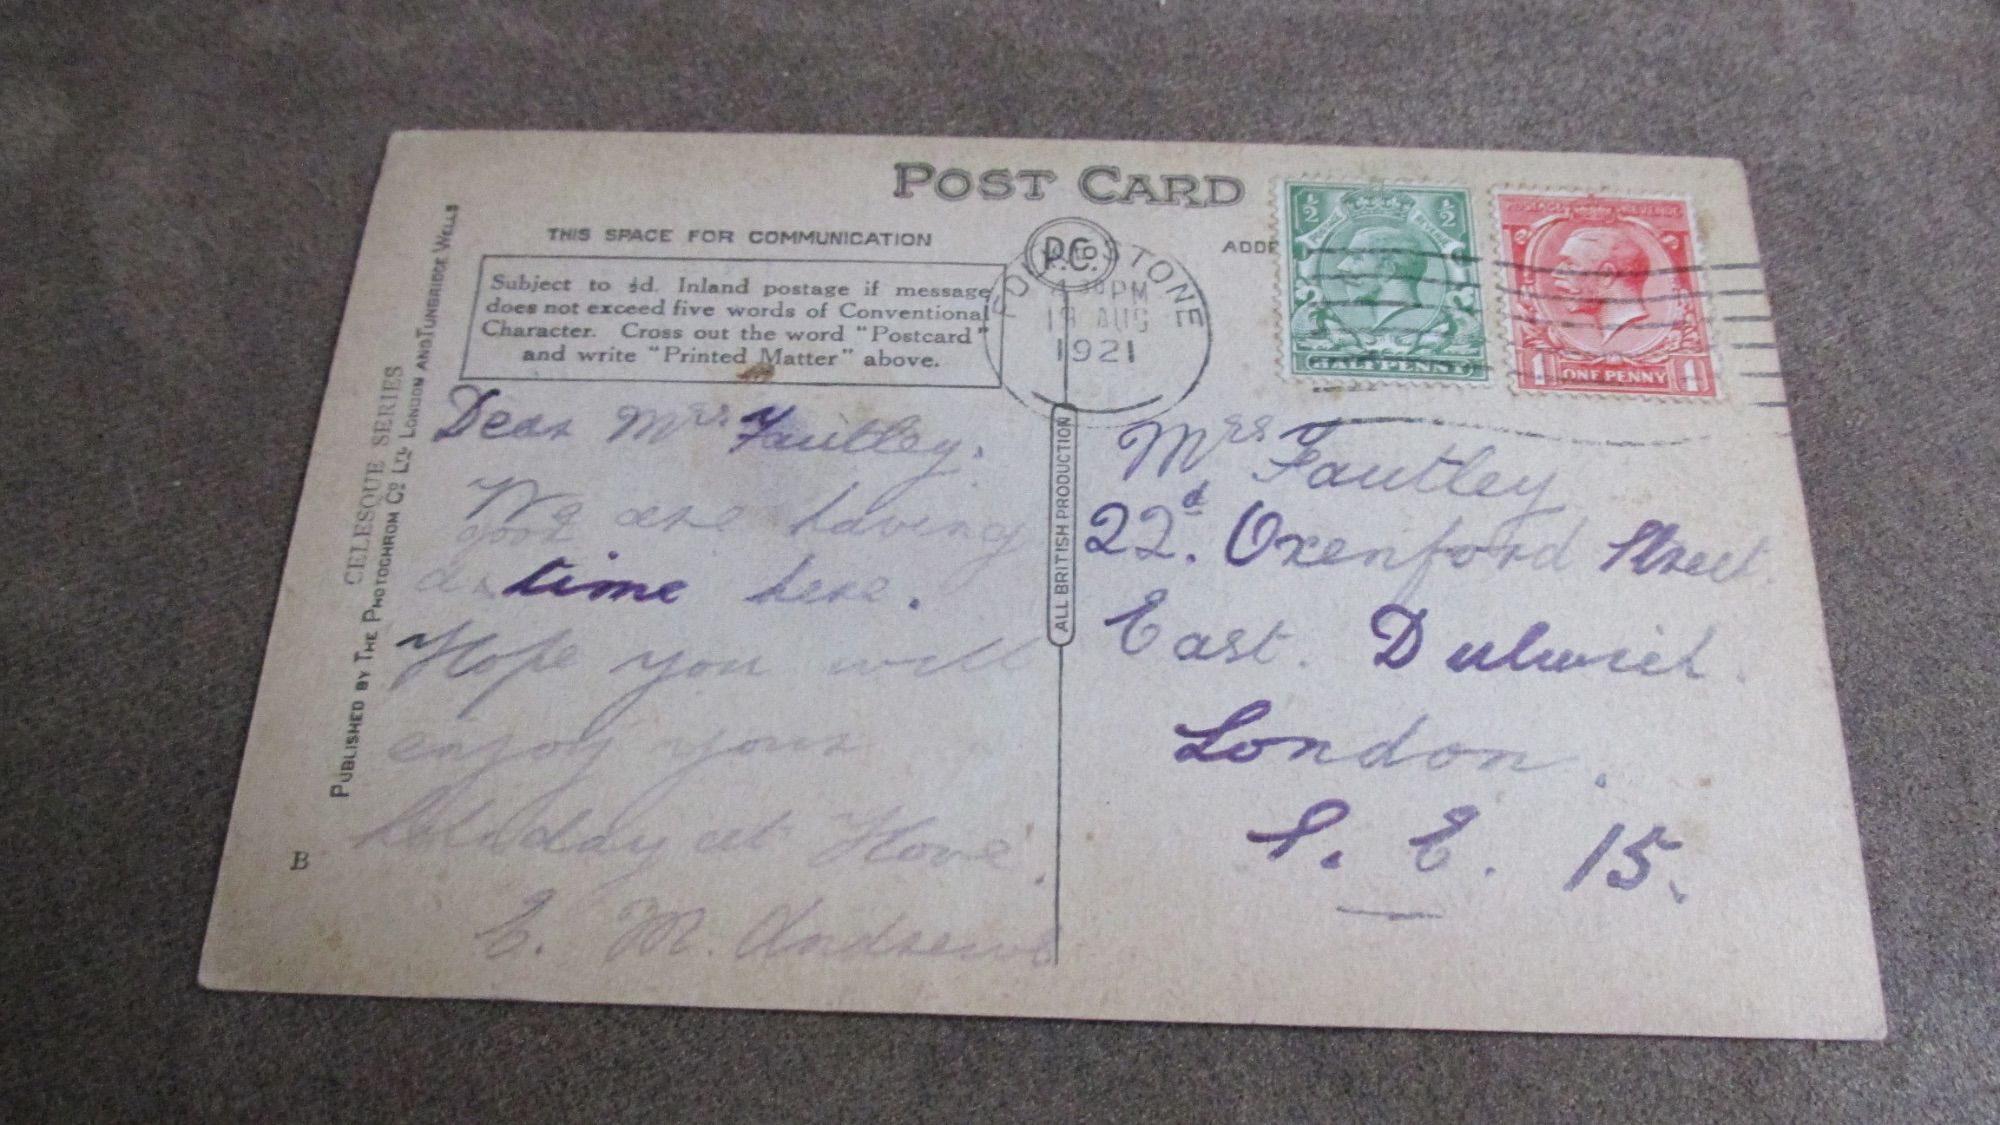 POST CARD
THIS SPACE FOR COMMUNICATION
ADD
P.C.
Subject to ½d. Inland postage if message
does not exceed five words of Conventional
Character. Cross out the word "Postcard"
and write "Printed Matter" above.
FOLKESTONE
PM
19 AUG
1921
½ ½
POSTAGE REVENUE
HALFPENNY
POSTAGE REVENUE
1 ONE PENNY 1
CELESQUE SERIES
PUBLISHED BY THE PHOTOCHROM CO LTD LONDON AND TUNBRIDGE WELLS
ALL BRITISH PRODUCTION
B
Dear Mrs Fautley.
We are having
a good time here.
Hope you will
enjoy your
holiday at Hove.
E. M. Andrews
Mrs Fautley
22d. Oxenford Street
East. Dulwich.
London.
S. E. 15.